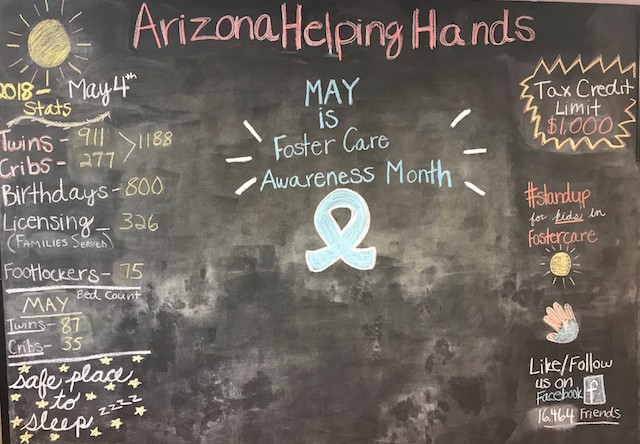 Arizona Helping Hands
2018- May 4th
Stats
Twins- 911 >1188
Cribs- 277
Birthdays-800
Licensing- 326
(FAMILIES SERVED)
Footlockers-75
MAY Bed Count
Twins- 87
Cribs- 35
safe place
to
sleep zzzz
MAY
is
Foster Care
Awareness Month
Tax Credit
Limit
$1,000
#standup
for kids in
fostercare
Like/Follow
us on
Facebook f
16,464 Friends